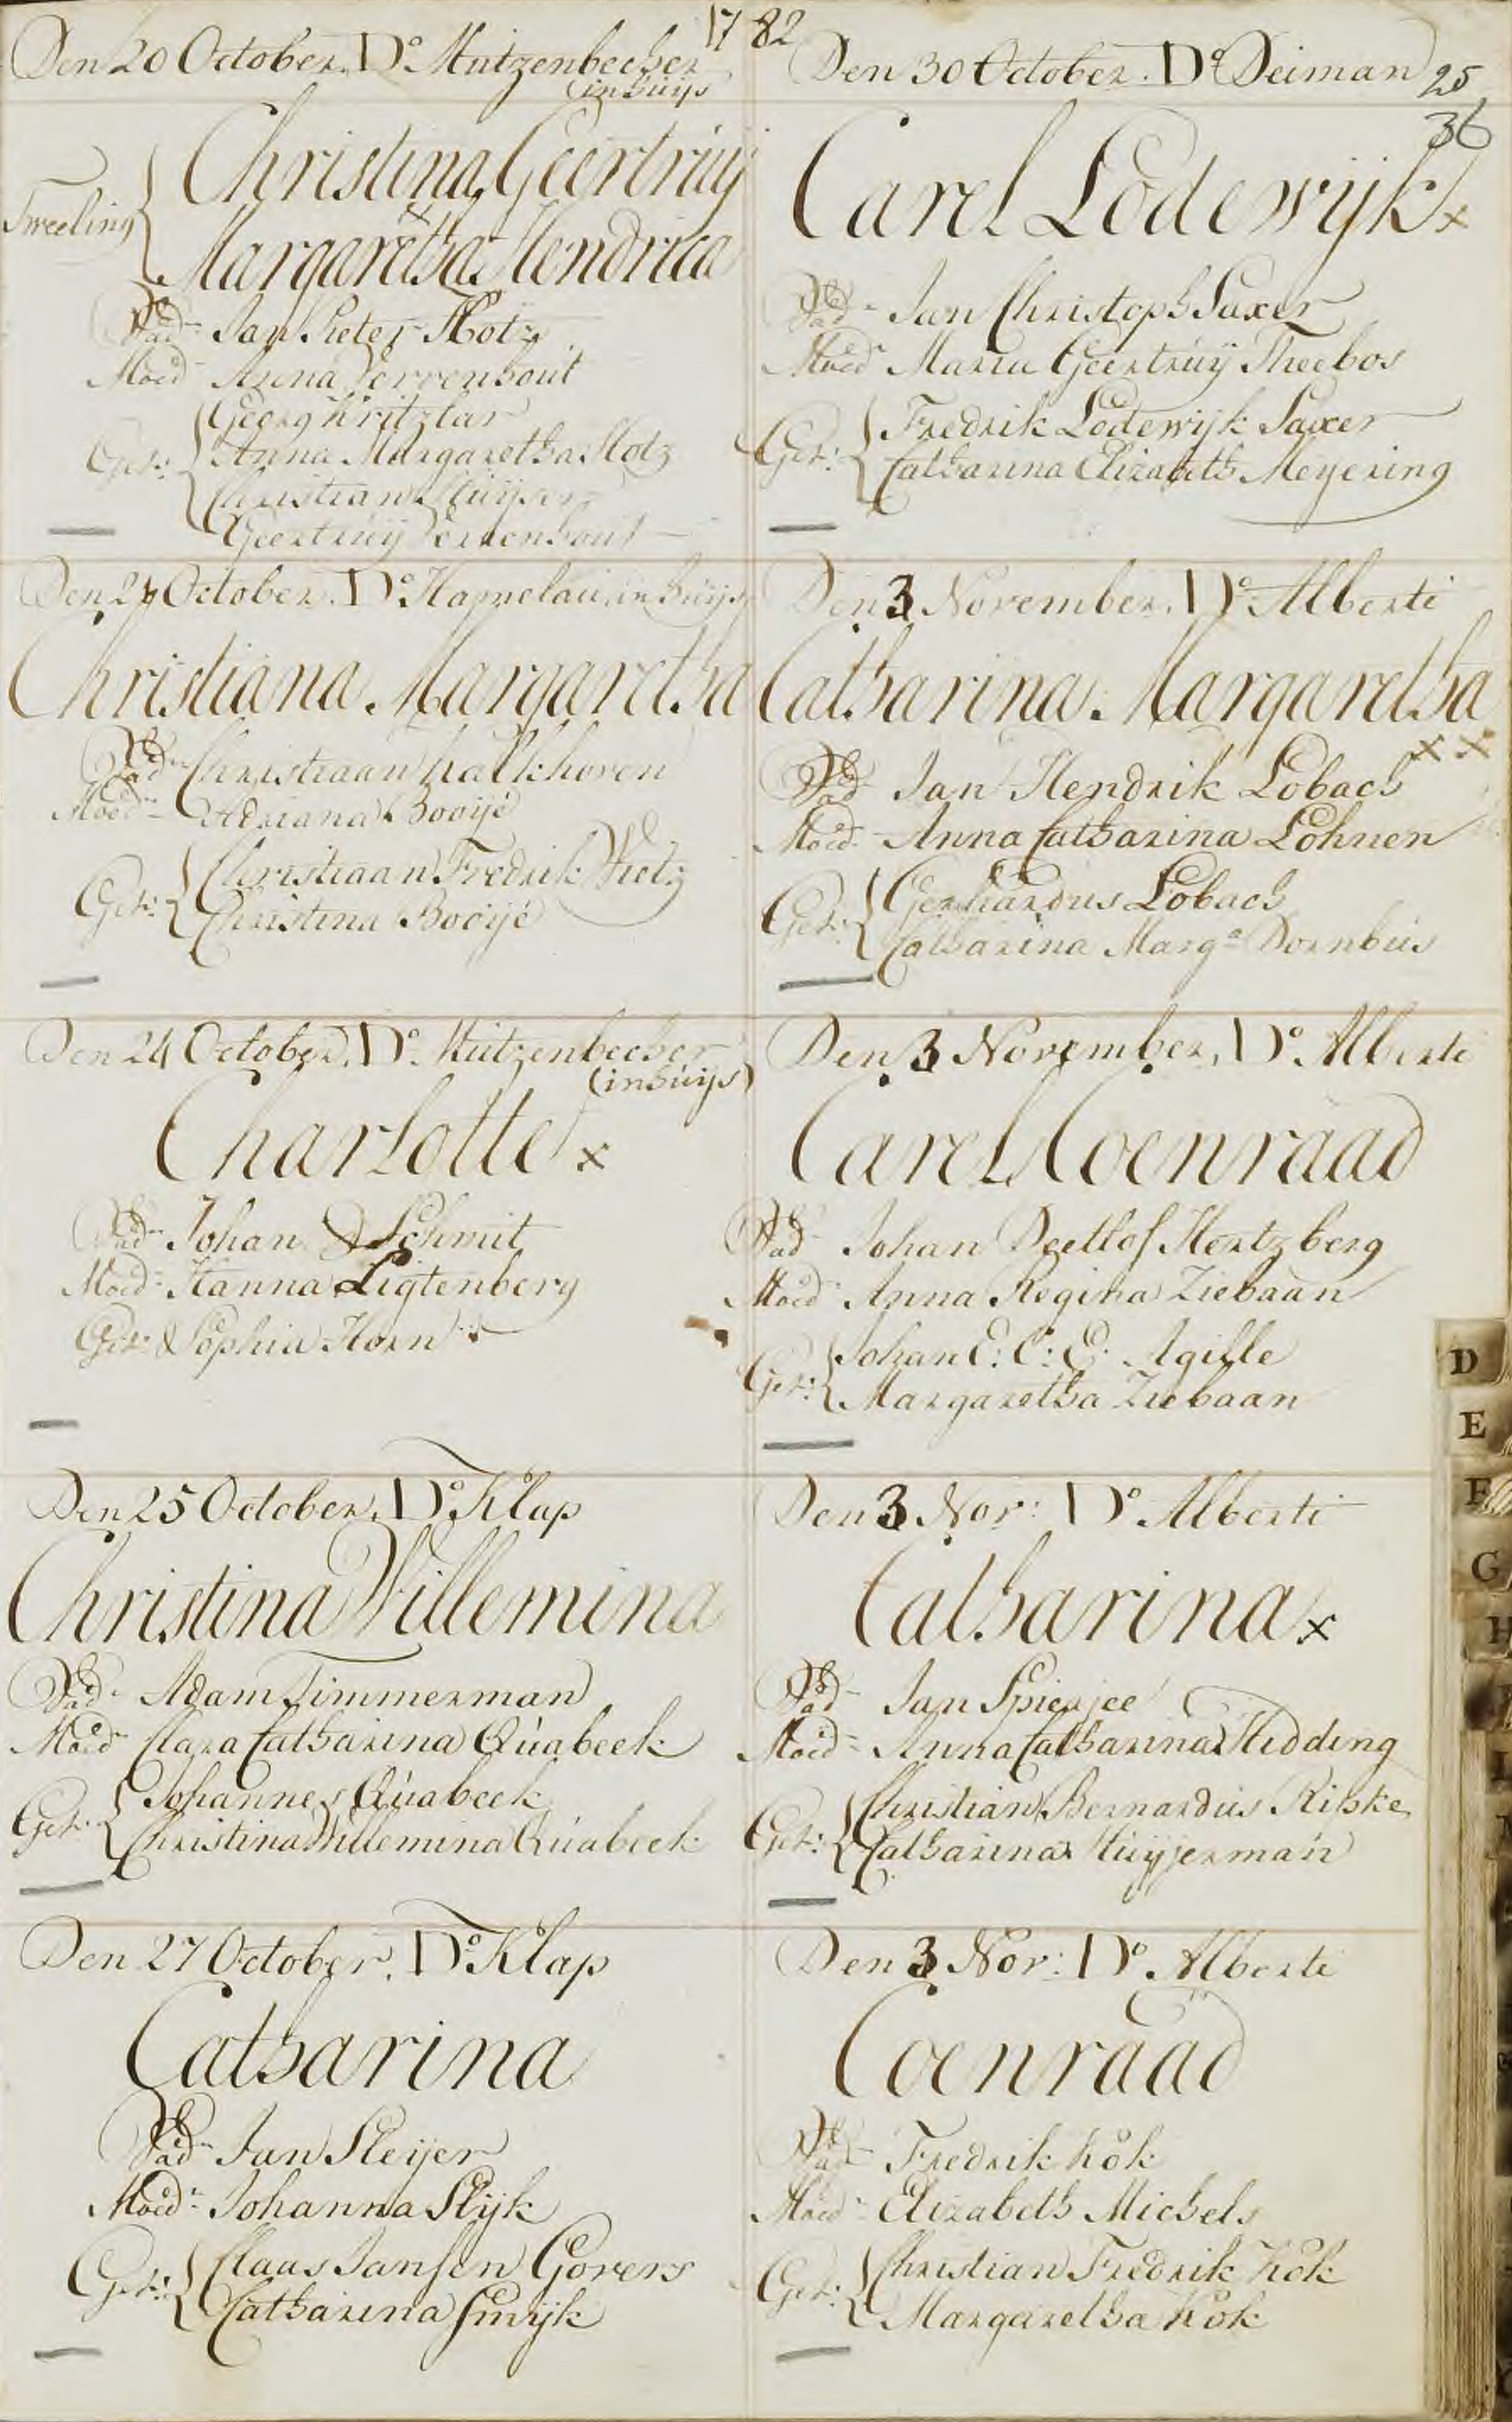 1782
Den 20 October. Do. Mutzenbecher
(in huijs
Tweeling
Christina Geertruij
Margaretha Hendrica
Vad:r Jan Pieter Hotz
Moed:r Anna
Get: Georg Kritzlar
Anna Margaretha Hotz
Christian
Geertruij
Den 24 October. Do. Hamelau, in huijs
Christiana Margaretha
Vad:r Christiaan Kalkhoven
Moed:r Adriana Booijé
Get: Christiaan Fredrik Vietz
Christina Booijé
Den 24 October. Do. Mutzenbecher
(in huijs)
Charlotte x
Vad:r Johan Schmit
Moed:r Hanna Ligtenberg
Get: Sophia Horn
Den 25 October. Do. Klap
Christina Willemina
Vad:r Adam Timmerman
Moed:r Clara Catharina Quabeek
Get: Johannes Quabeek
Christina Willemina Quabeek
Den 27 October. Do. Klap
Catharina
Vad:r Jan Sleijer
Moed:r Johanna Slijk
Get: Claas Jansen Govers
Catharina Smijk
Den 30 October. Do. Deiman
25
36
Carel Lodewijk x
Vad:r Jan Christoph Saxer
Moed:r Maria Geertruij Theebos
Get: Fredrik Lodewijk Saxer
Catharina Elizabeth Meyering
Den 3 November. Do. Alberti
Catharina Margaretha
x x
Vad:r Jan Hendrik Lobach
Moed:r Anna Catharina Lohnen
Get: Gerhardus Lobach
Catharina Marga. Dornbus
Den 3 November. Do. Alberti
Carel Coenraad
Vad:r Johan Deetlof Hertzberg
Moed:r Anna Regina Ziebaan
Get: Johan C: C: C: Agille
Margaretha Ziebaan
Den 3 Nov: Do. Alberti
Catharina x
Vad:r Jan Spierjee
Moed:r Anna Catharina Hidding
Get: Christian Bernardus Ripke
Catharina Huijjerman
Den 3 Nov: Do. Alberti
Coenraad
Vad:r Fredrik Kok
Moed:r Elizabeth Michels
Get: Christian Fredrik Kok
Margaretha Kok
D
E
F
G
H